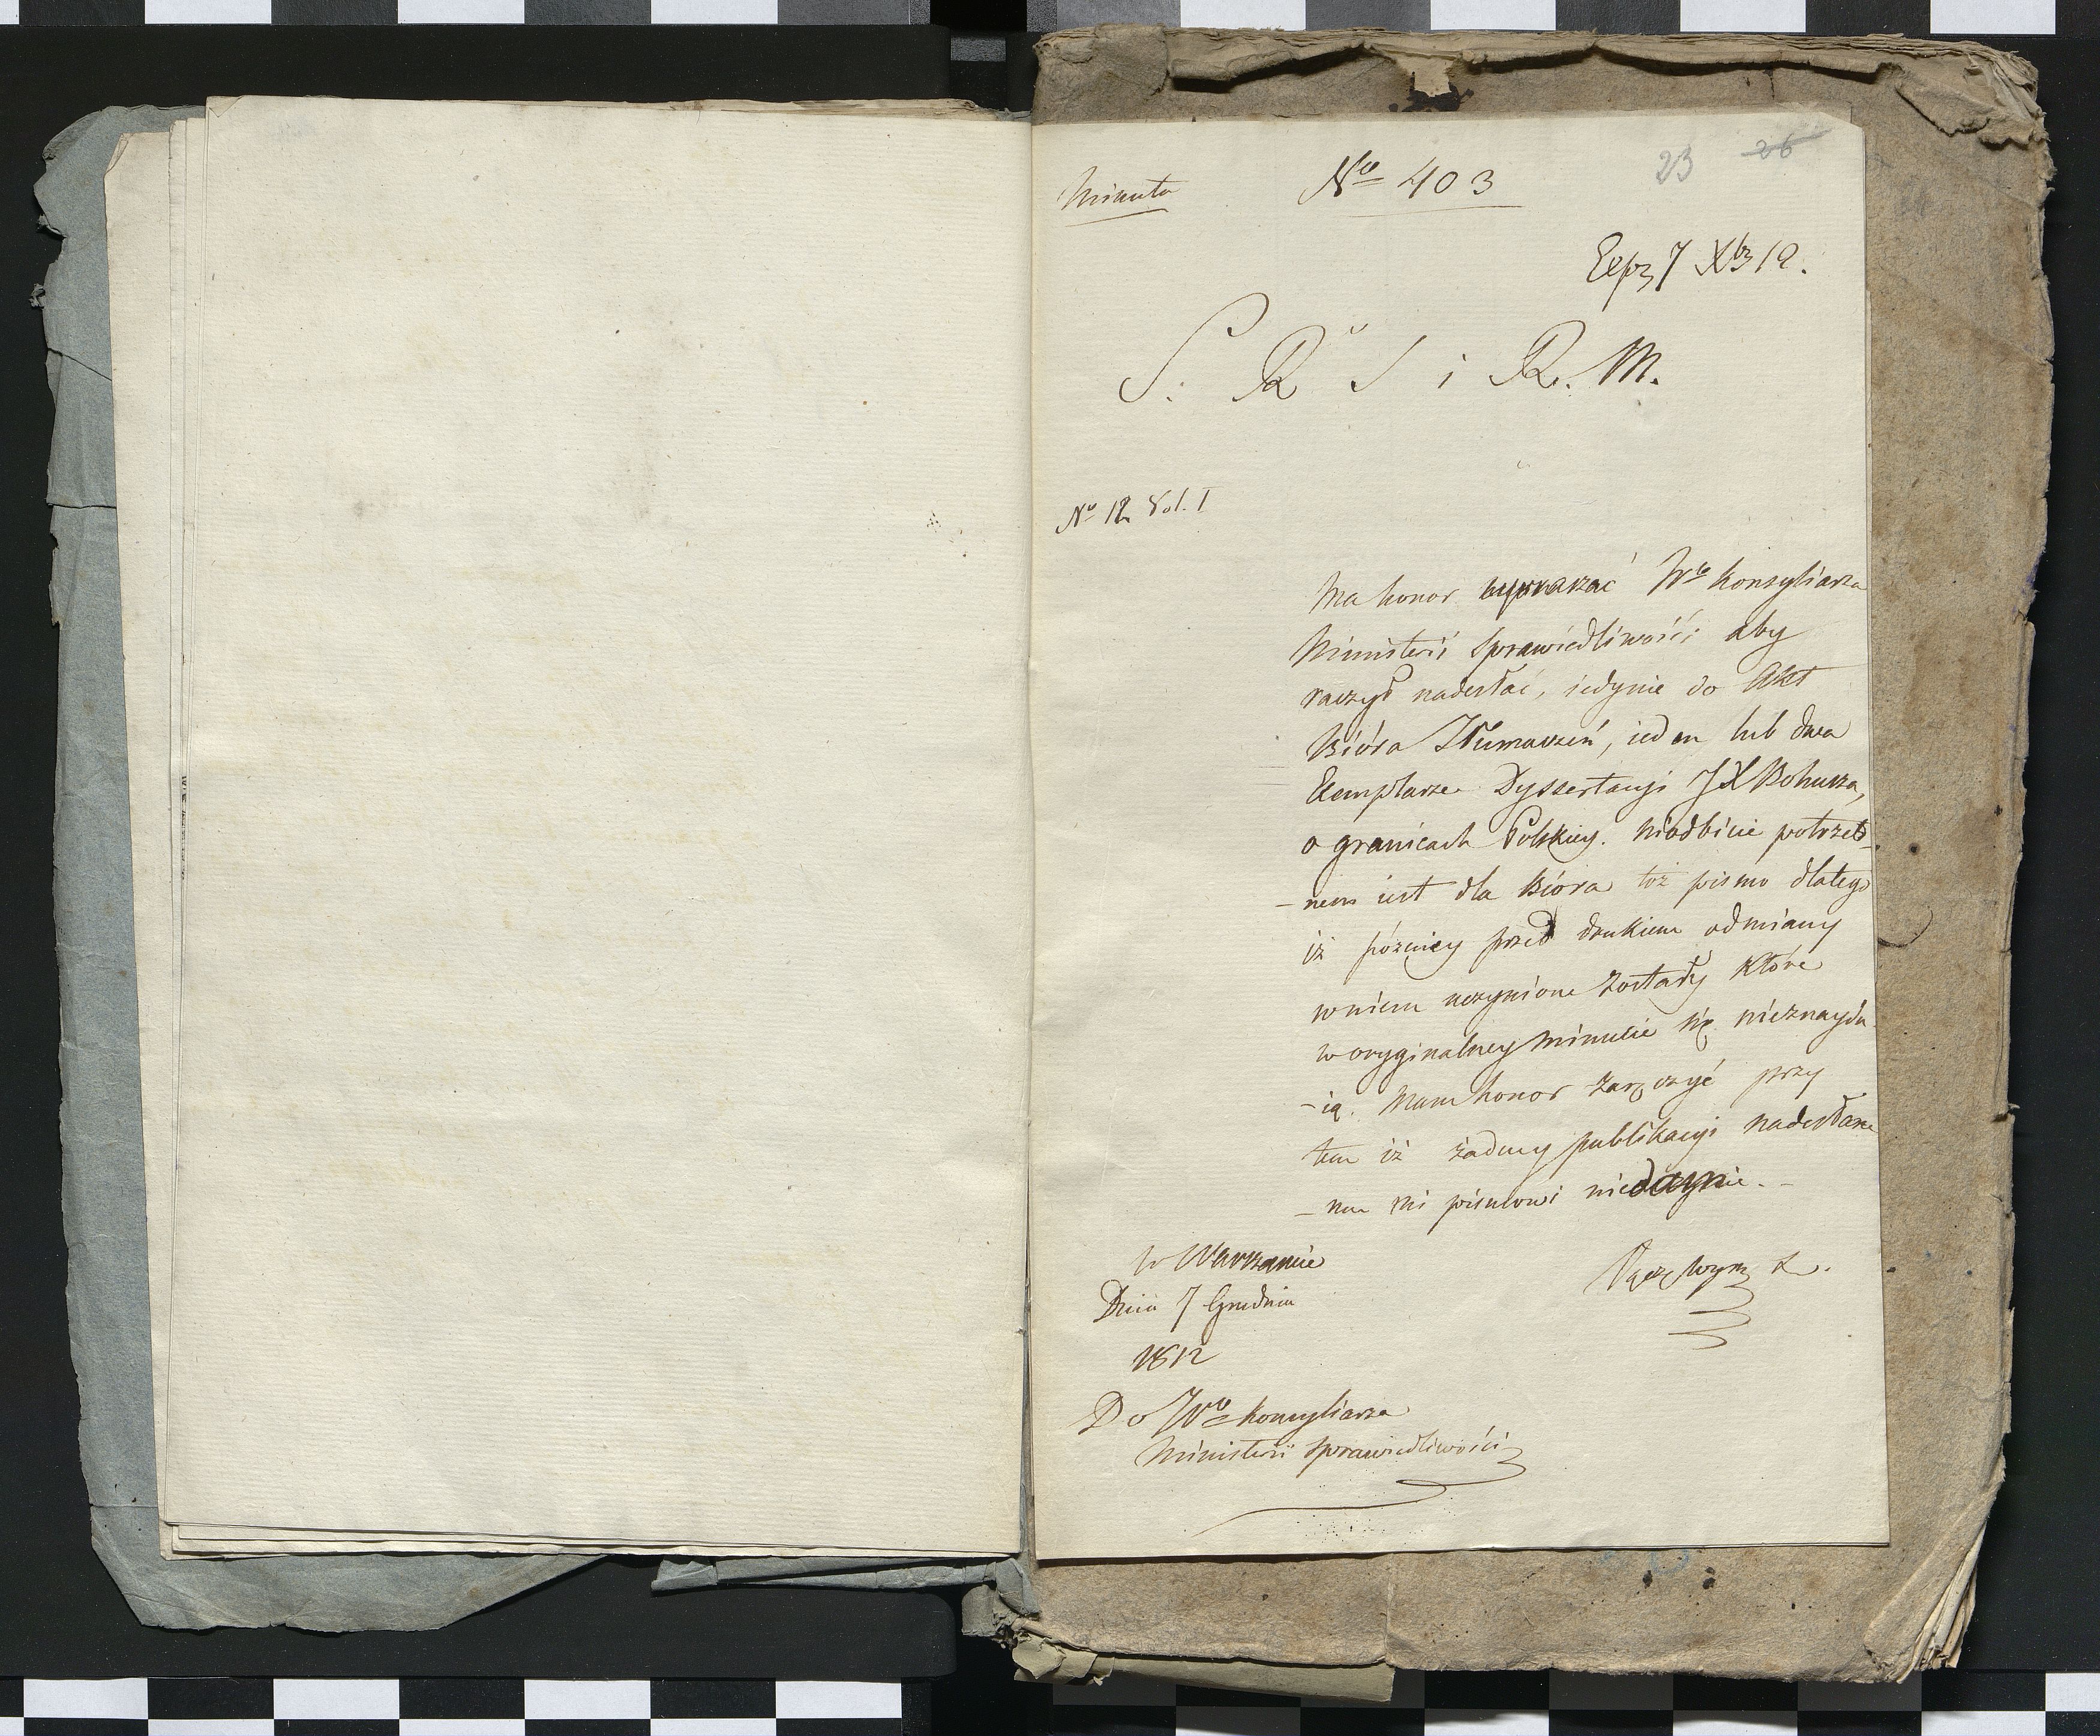 Minuta
No 403
23 26
Exp 7 Xbr 12.
S. R S i R. M.
No 12 Vol. I
Ma honor upraszać Wo Konsyliarza
Ministerii Sprawiedliwości aby
raczył nadesłać, iedynie do Akt
Bióra Tłumaczeń, ieden lub dwa
Exemplarze Dyssertacyi JX Bohusza,
o granicach Polskiey. Nieodbicie potrzeb-
-nem iest dla Bióra toż pismo dlatego
iż pózniey przed drukiem odmiany
w niem uczynione zostały które
w oryginalney minucie się nieznaydu-
-ią. Mam honor zaręczyć przy
tem iż żadney publikacyi nadesłane-
-mu mi pismowi nie
w Warszawie
Dnia 7 Grudnia
1812
Do Wo Konsyliarza
Ministerii Sprawiedliwości